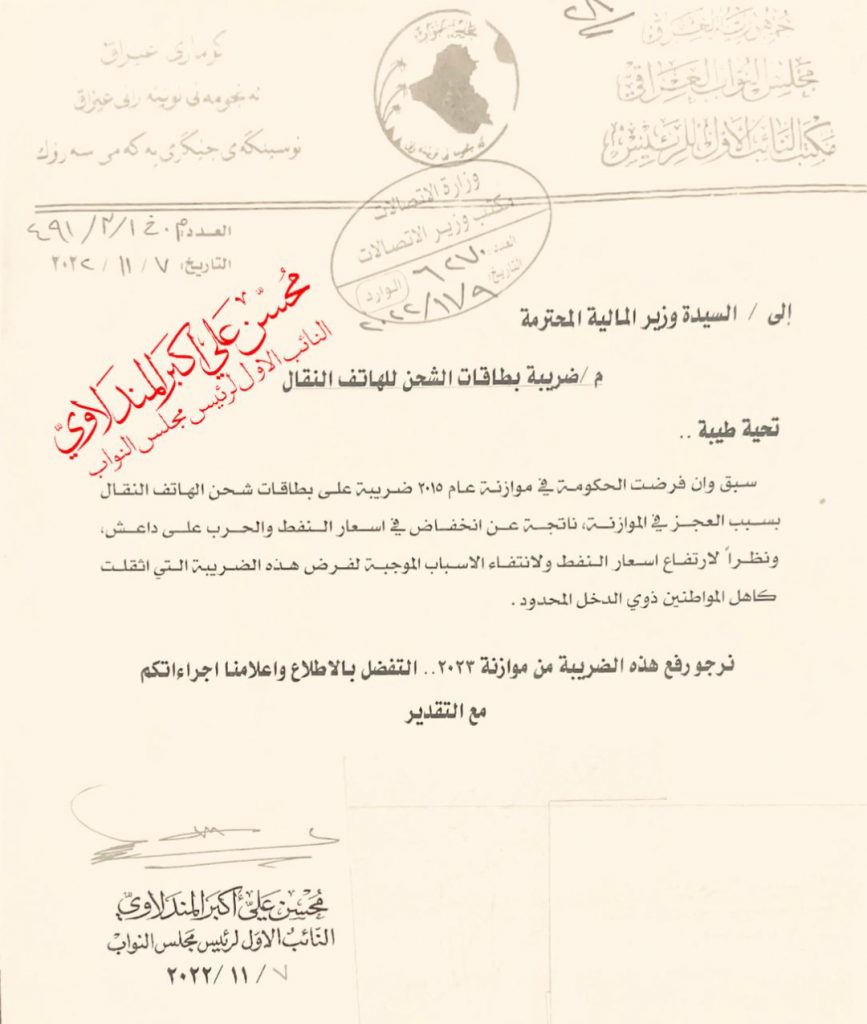 جمهورية العراق
مجلس النواب العراقي
مكتب النائب الأول للرئيس
كۆماری عیراق
ئه نجومه نی نوینه رانی عیراق
نوسینگه ی جێگری یه که می سه رۆك
مجلس النواب
وزارة الاتصالات
مكتب وزير الاتصالات
العدد: ٦٢٧٠
التاريخ: ٢٠٢٢/١١/٩
الوارد
العدد: م.خ /٢/١/ ٤٩١
التاريخ: ٧ / ١١ / ٢٠٢٢
محسن علي أكبر المندلاوي
النائب الاول لرئيس مجلس النواب
إلى / السيدة وزير المالية المحترمة
م /ضريبة بطاقات الشحن للهاتف النقال
تحية طيبة ..
سبق وان فرضت الحكومة في موازنة عام ٢٠١٥ ضريبة على بطاقات شحن الهاتف النقال
بسبب العجز في الموازنة، ناتجة عن انخفاض في اسعار النفط والحرب على داعش،
ونظراً لارتفاع اسعار النفط ولانتفاء الاسباب الموجبة لفرض هذه الضريبة التي اثقلت
كاهل المواطنين ذوي الدخل المحدود .
نرجو رفع هذه الضريبة من موازنة ٢٠٢٣.. التفضل بالاطلاع واعلامنا اجراءاتكم
مع التقدير
مُحسن عَليّ أكبَر المندلاويّ
النّائبُ الاوَل لرئيس مجلس النواب
٧ / ١١ /٢٠٢٢